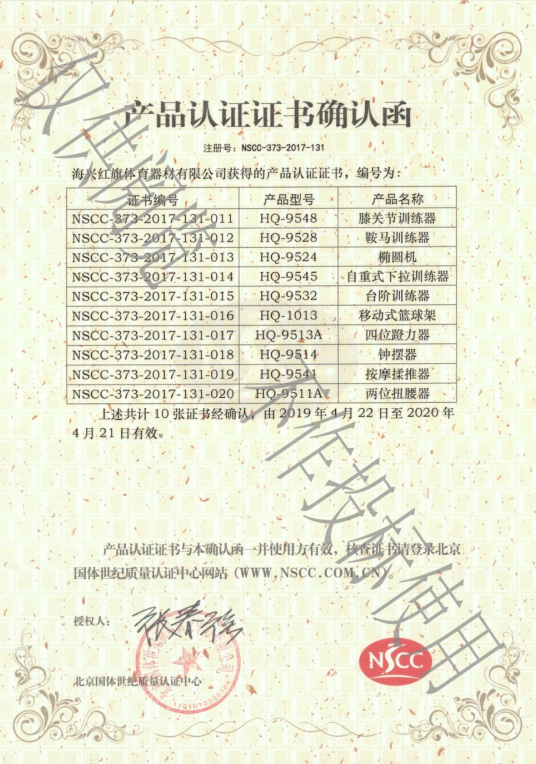 产品认证证书确认函
注册号：NSCC-373-2017-131
海兴红旗体育器材有限公司获得的产品认证证书，编号为：
证书编号 产品型号 产品名称
NSCC-373-2017-131-011 HQ-9548 膝关节训练器
NSCC-373-2017-131-012 HQ-9528 鞍马训练器
NSCC-373-2017-131-013 HQ-9524 椭圆机
NSCC-373-2017-131-014 HQ-9545 自重式下拉训练器
NSCC-373-2017-131-015 HQ-9532 台阶训练器
NSCC-373-2017-131-016 HQ-1013 移动式篮球架
NSCC-373-2017-131-017 HQ-9513A 四位蹬力器
NSCC-373-2017-131-018 HQ-9514 钟摆器
NSCC-373-2017-131-019 HQ-9541 按摩揉推器
NSCC-373-2017-131-020 HQ-9511A 两位扭腰器
上述共计 10 张证书经确认，由 2019 年 4 月 22 日至 2020 年
4 月 21 日有效。
产品认证证书与本确认函一并使用方有效，核查证书请登录北京
国体世纪质量认证中心网站（WWW.NSCC.COM.CN）。
授权人：
NSCC
北京国体世纪质量认证中心
仅供阅览
不作投标使用